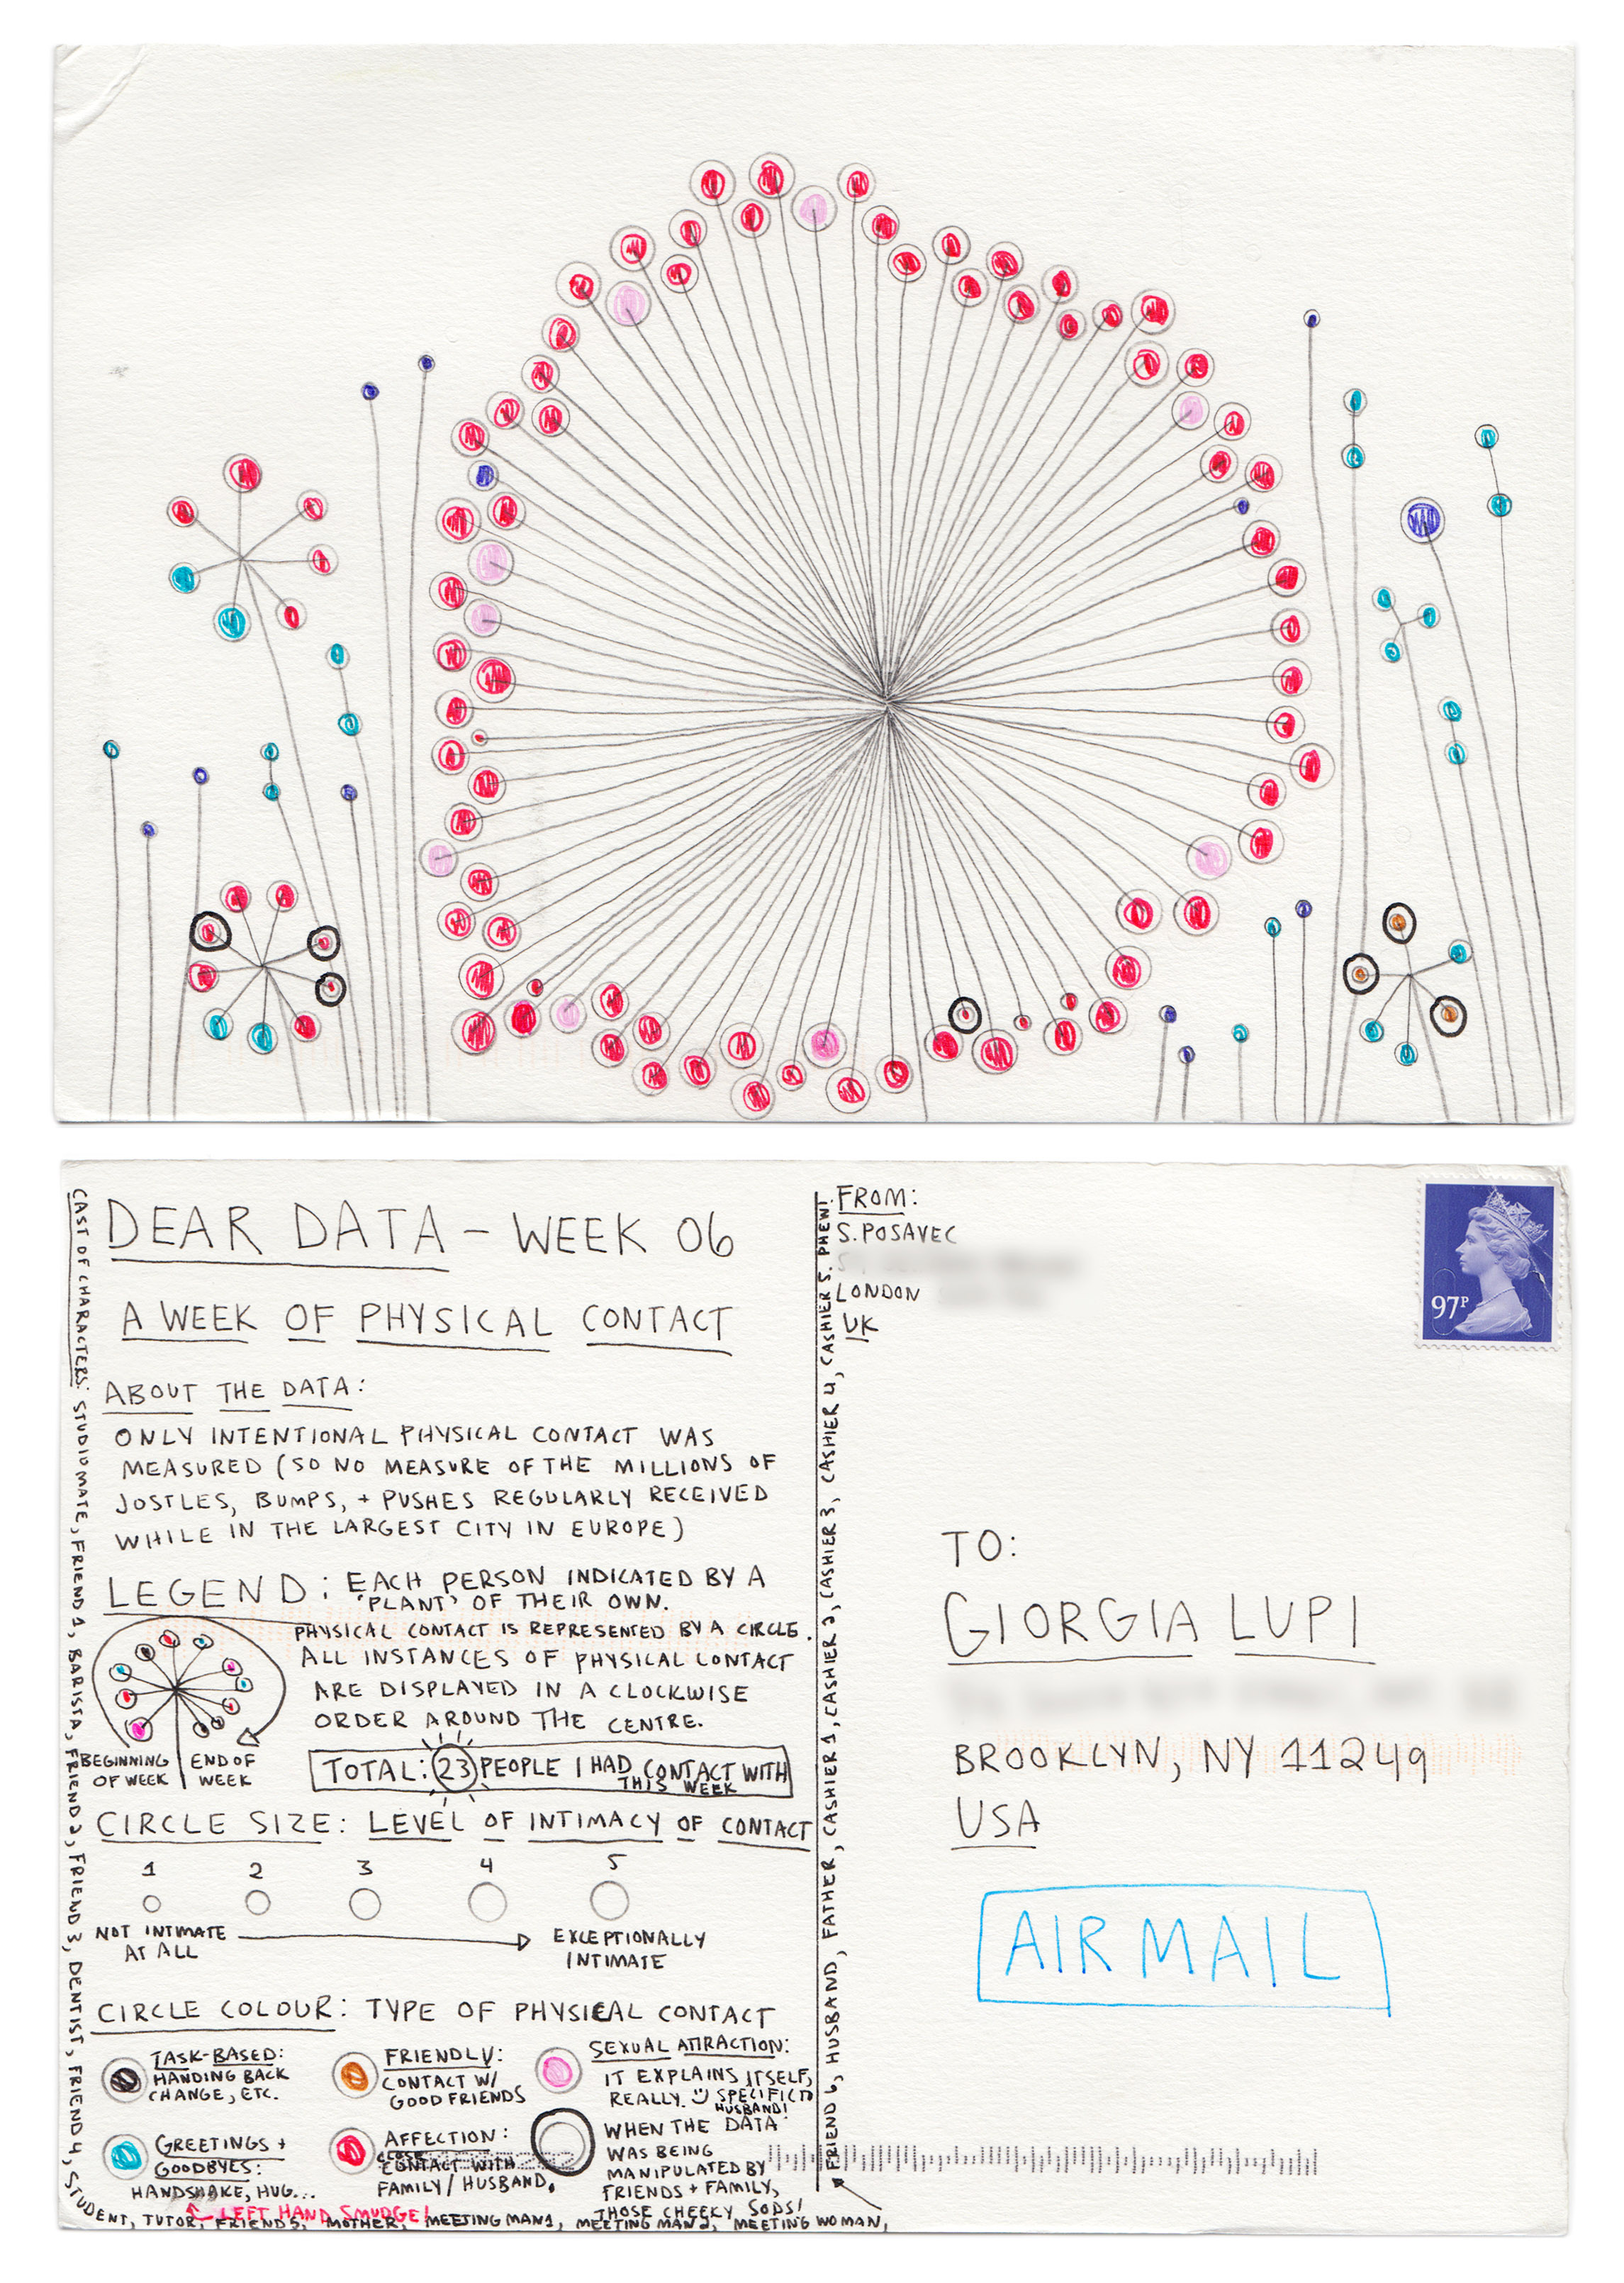 DEAR DATA - WEEK 06
A WEEK OF PHYSICAL CONTACT
ABOUT THE DATA:
ONLY INTENTIONAL PHYSICAL CONTACT WAS
MEASURED (SO NO MEASURE OF THE MILLIONS OF
JOSTLES, BUMPS, + PUSHES REGULARLY RECEIVED
WHILE IN THE LARGEST CITY IN EUROPE)
LEGEND: EACH PERSON INDICATED BY A
'PLANT' OF THEIR OWN.
PHYSICAL CONTACT IS REPRESENTED BY A CIRCLE.
ALL INSTANCES OF PHYSICAL CONTACT
ARE DISPLAYED IN A CLOCKWISE
ORDER AROUND THE CENTRE.
BEGINNING
OF WEEK
END OF
WEEK
TOTAL: 23 PEOPLE I HAD CONTACT WITH
THIS WEEK
CIRCLE SIZE: LEVEL OF INTIMACY OF CONTACT
1 2 3 4 5
NOT INTIMATE
AT ALL
EXCEPTIONALLY
INTIMATE
CIRCLE COLOUR: TYPE OF PHYSICAL CONTACT
TASK-BASED:
HANDING BACK
CHANGE, ETC.
FRIENDLY:
CONTACT W/
GOOD FRIENDS
SEXUAL ATTRACTION:
IT EXPLAINS ITSELF,
REALLY. SPECIFIC TO
HUSBAND!
GREETINGS +
GOODBYES:
HANDSHAKE, HUG...
AFFECTION:
CLOSE
CONTACT WITH
FAMILY/HUSBAND.
WHEN THE DATA
WAS BEING
MANIPULATED BY
FRIENDS + FAMILY,
THOSE CHEEKY SODS!
LEFT HAND SMUDGE!
CAST OF CHARACTERS: STUDIOMATE, FRIEND 1, BARISTA, FRIEND 2, FRIEND 3, DENTIST, FRIEND 4, STUDENT, TUTOR, FRIEND 5, MOTHER, MEETING MAN 1, MEETING MAN 2, MEETING WOMAN,
FRIEND 6, HUSBAND, FATHER, CASHIER 1, CASHIER 2, CASHIER 3, CASHIER 4, CASHIER 5. PHEW!
FROM:
S. POSAVEC
LONDON
UK
97P
TO:
GIORGIA LUPI
BROOKLYN, NY 11249
USA
AIR MAIL